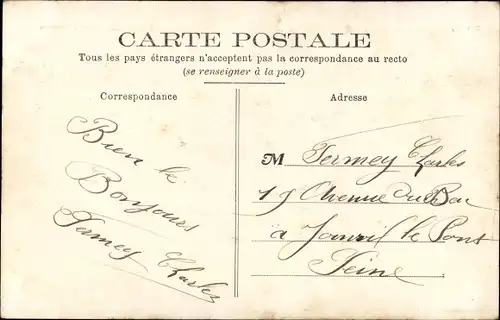 CARTE POSTALE
Tous les pays étrangers n'acceptent pas la correspondance au recto
(se renseigner à la poste)
Correspondance
Adresse
Bien le
Bonjours
Fermey Charles
M Fermey Charles
19 Avenue du Bac
a Joinvil le Pont
Seine